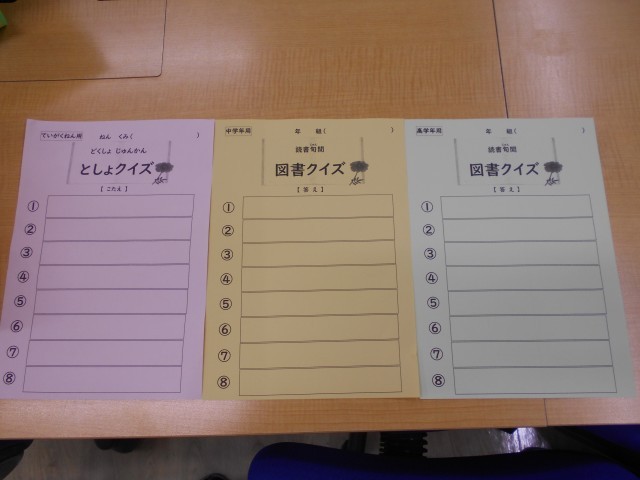 ていがくねん用
ねん くみ( )
どくしょ じゅんかん
としょクイズ
【 こたえ 】
①
②
③
④
⑤
⑥
⑦
⑧
中学年用
年 組( )
読書旬間
図書クイズ
【 答 え 】
①
②
③
④
⑤
⑥
⑦
⑧
高学年用
年 組( )
読書旬間
図書クイズ
【 答 え 】
①
②
③
④
⑤
⑥
⑦
⑧